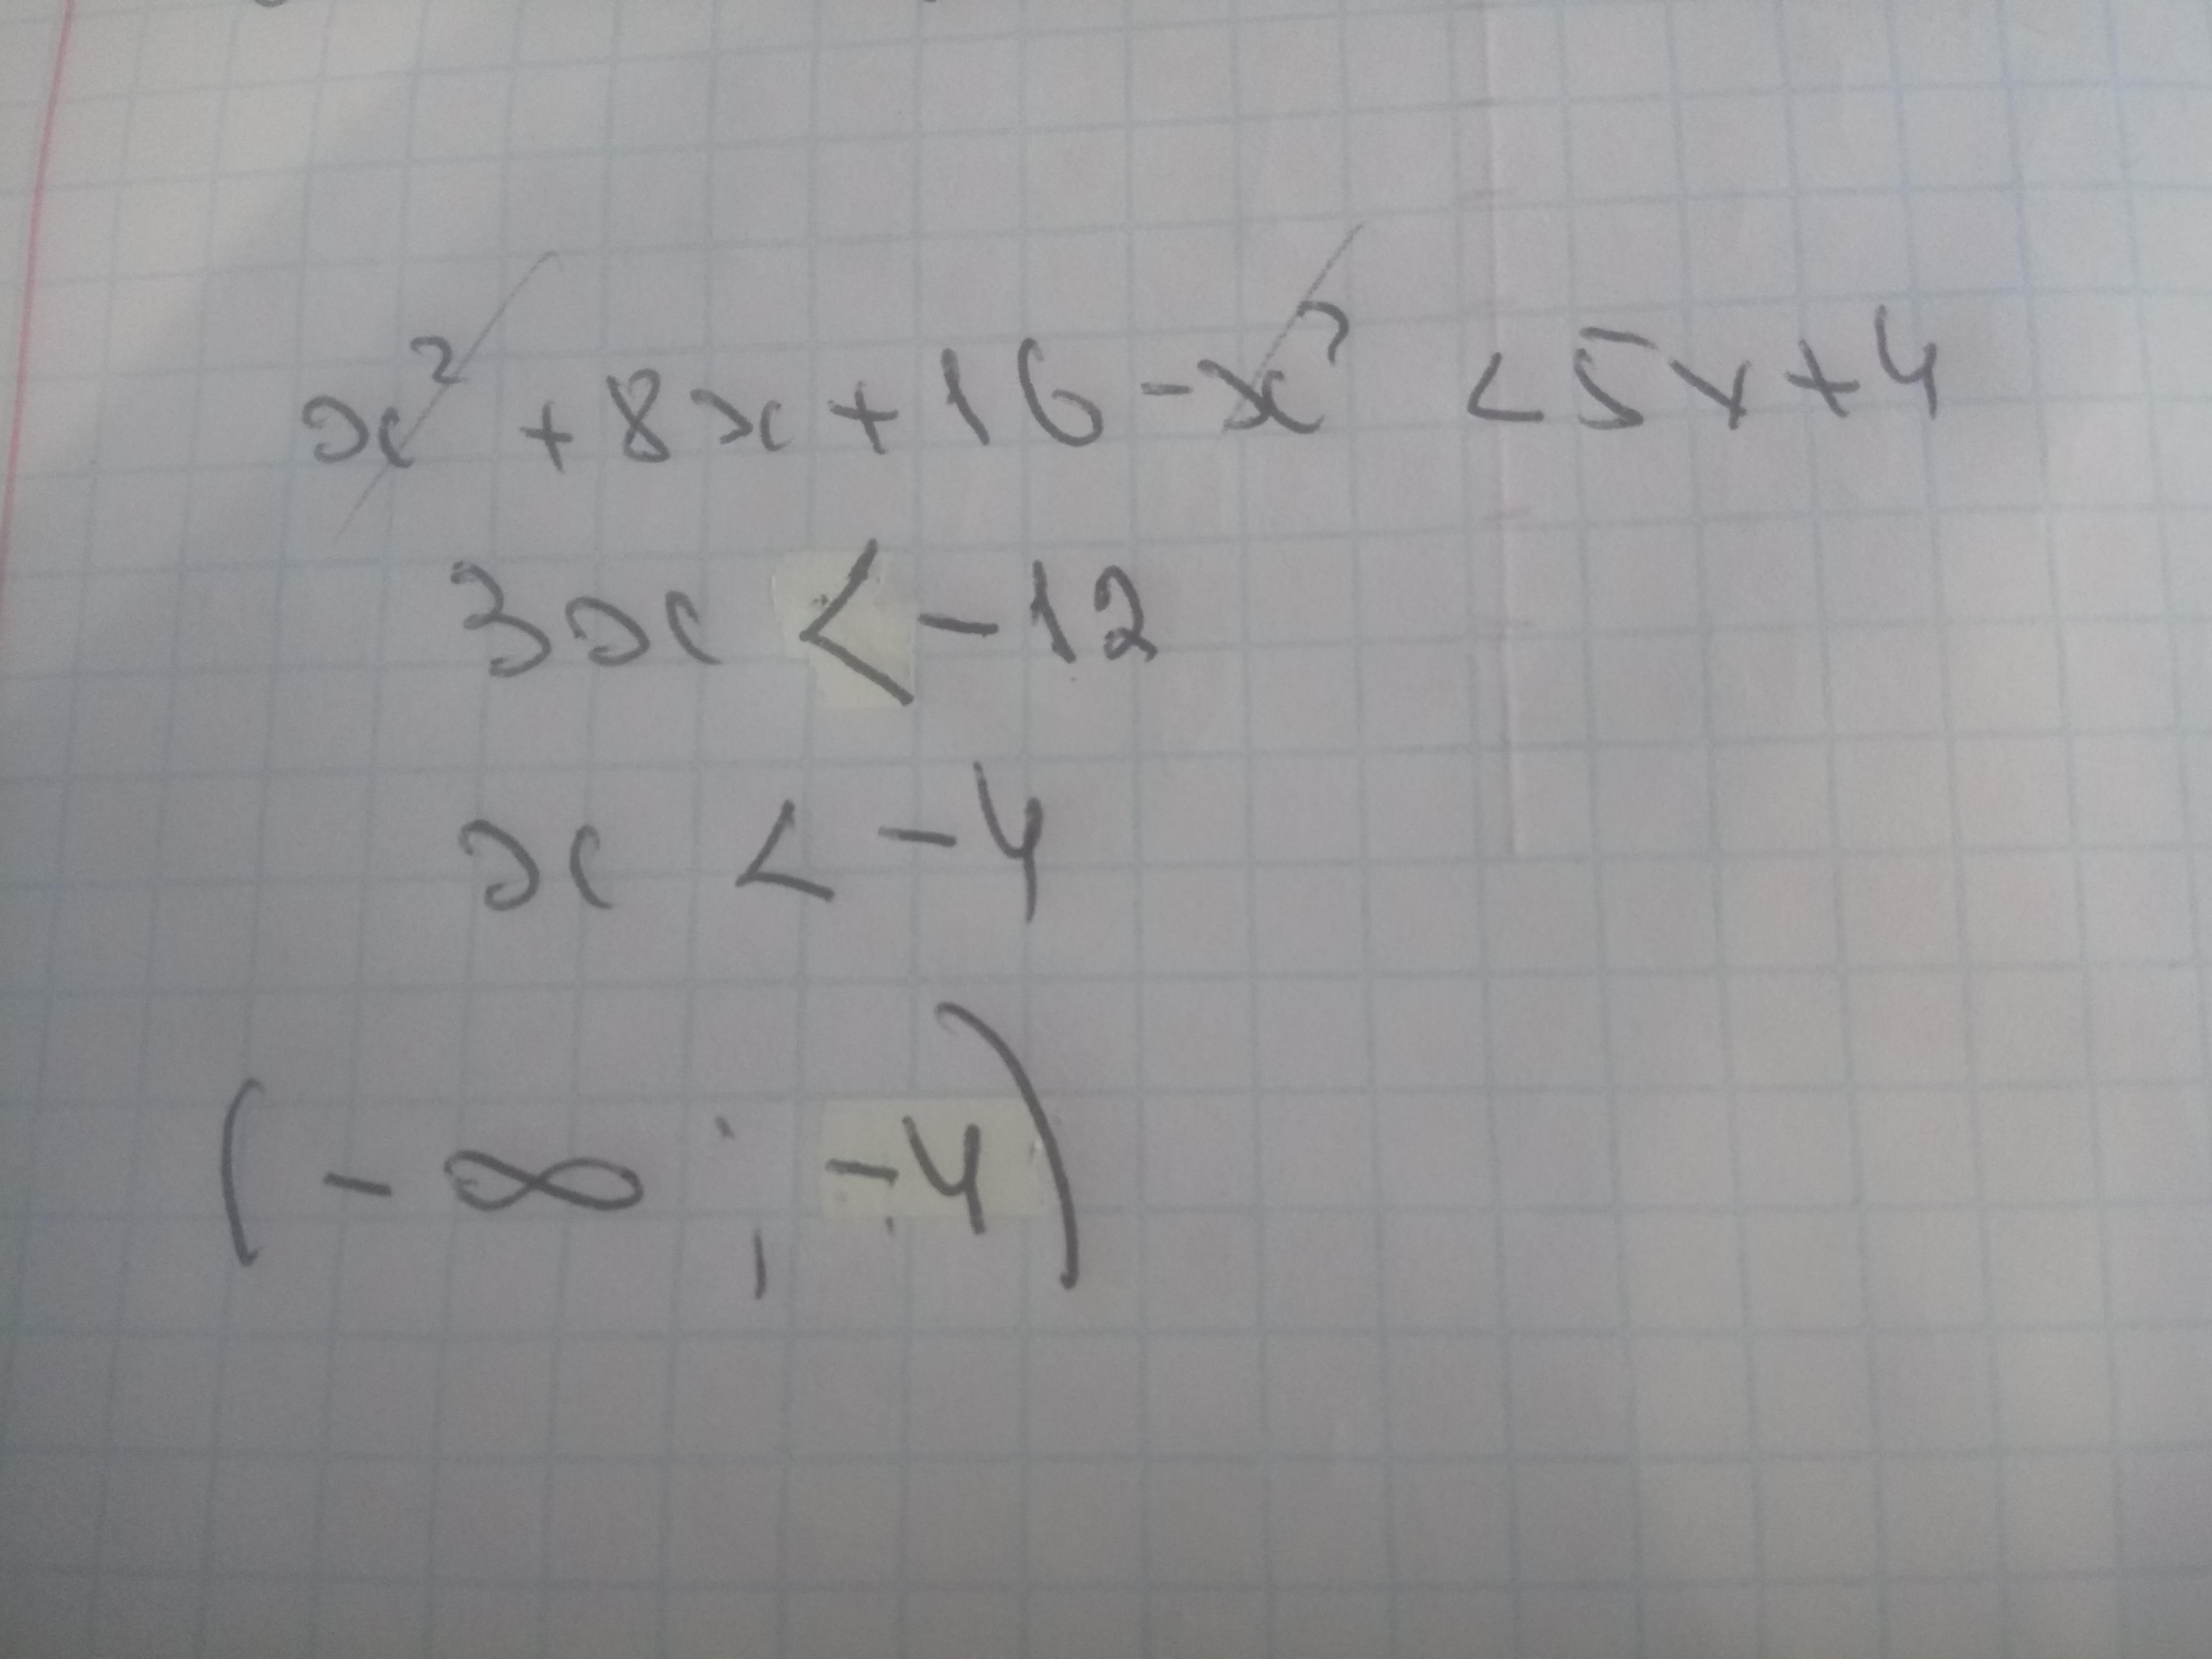 x² + 8x + 16 - x² < 5x + 4
3x < -12
x < -4
(-∞ ; -4)